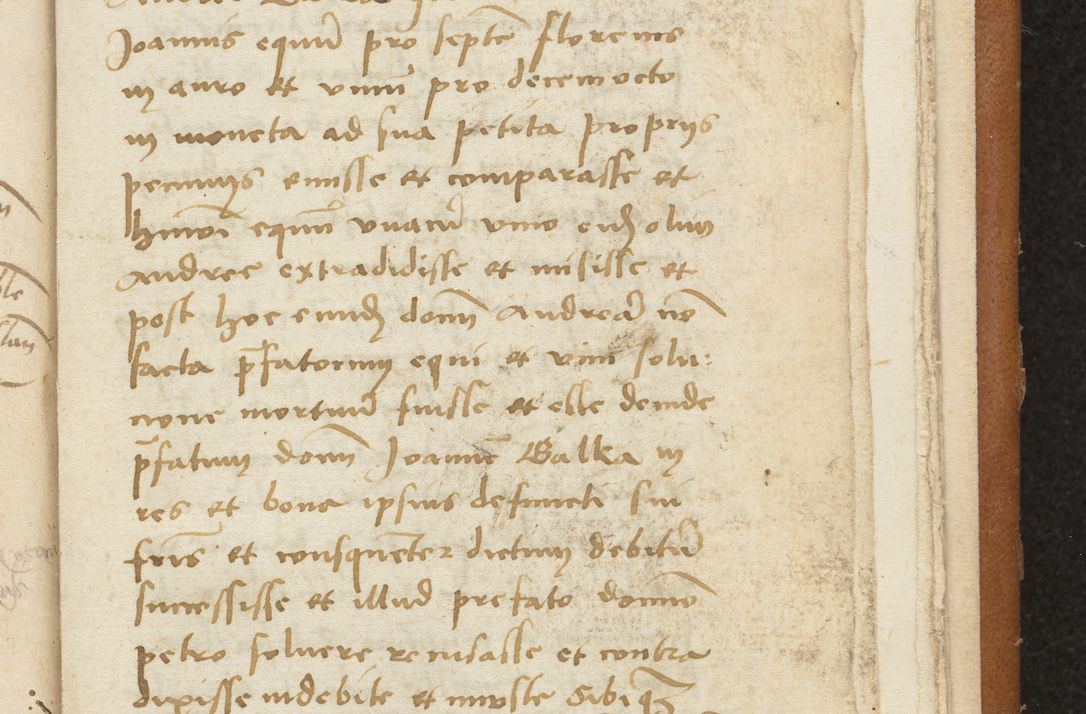 Joannis equū pro septē florenis
in auro et vinū pro decemocto
in moneta ad sua petita proprijs
pecunijs emisse et comparasse et
hmōi equū vnacū vino eidē olim
Andree extradidisse et misisse et
post hoc eundē donū Andreā nō
facta p̄fatorum equi et vini solu:
cione mortuū fuisse et esse deinde
p̄fatum donū Joannē Galka in
res et bona ipsius defuncti sui
fris et consquēter dictum debitū
successisse et illud prefato domīo
petro soluere recusasse et contra
dixisse indebite et iniuste sibiqȝ